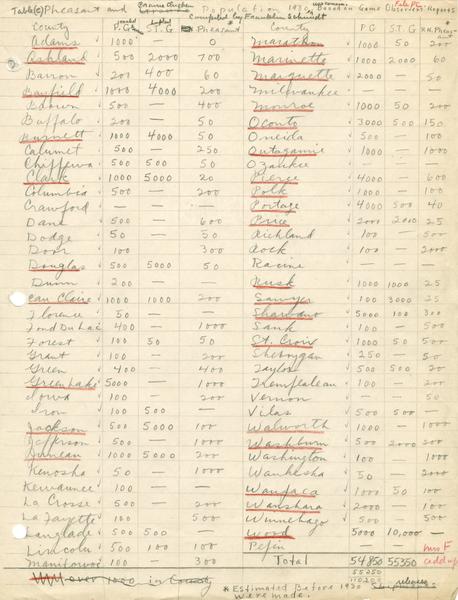 Table (c) Pheasant and Prairie Chicken Population 1930 Based on Game Observers Reports
Compiled by Franklin Schmidt
County P.G. ST.G Pheasant County P.G ST.G R.N. Pheas
Adams 1000 — 0 Marathon 1000 50 200
Ashland 500 2000 700 Marinette 1000 2000 60
Barron 200 400 60 Marquette 2000 — 50
Bayfield 1000 4000 200 Milwaukee — — —
Brown 500 — 400 Monroe 1000 50 200
Buffalo 200 — 50 Oconto 3000 500 150
Burnett 1000 4000 50 Oneida 500 — 100
Calumet 500 — 250 Outagamie 1000 — 100
Chippewa 500 500 50 Ozaukee — — —
Clark 1000 5000 20 Pierce 4000 — 600
Columbia 500 — 200 Polk 1000 — 100
Crawford — — — Portage 4000 500 40
Dane 500 — 600 Price 2000 2000 25
Dodge 50 — 50 Richland 100 — 500
Door 100 300 Rock 100 — 2000
Douglas 500 5000 50 Racine
Dunn 200 — — Rusk 1000 1000 25
Eau Claire 1000 1000 200 Sawyer 100 3000 25
Florence 50 — — Shawano 5000 100 300
Fond Du Lac 400 — 1000 Sauk 100 — 500
Forest 100 50 50 St. Croix 1000 50 500
Grant 100 — 200 Sheboygan 250 — 50
Green 400 — 400 Taylor 500 500 20
Green Lake 5000 — 1000 Trempleleau 100 — 200
Iowa 100 — 200 Vernon — — 50
Iron 100 500 Vilas 500 500 —
Jackson 500 5000 100 Walworth 1000 — 1000
Jefferson 500 — 1000 Washburn 500 2000 200
Juneau 1000 5000 200 Washington 100 100
Kenosha 50 — 1000 Waukesha 50 2000
Kewaunee 100 — — Waupaca 1000 50 100
La Crosse 500 — 200 Waushara 2000 — 100
La Fayette 100 500 Winnebago 500 — 500
Langlade 500 500 — Wood 5000 10,000 —
Lincoln 500 100 100 Pepin
Manitowoc 100 — 300 Total 54850 55350
55250
110,200
over 1000 in County
* Estimated Before 1930 releases
were made.